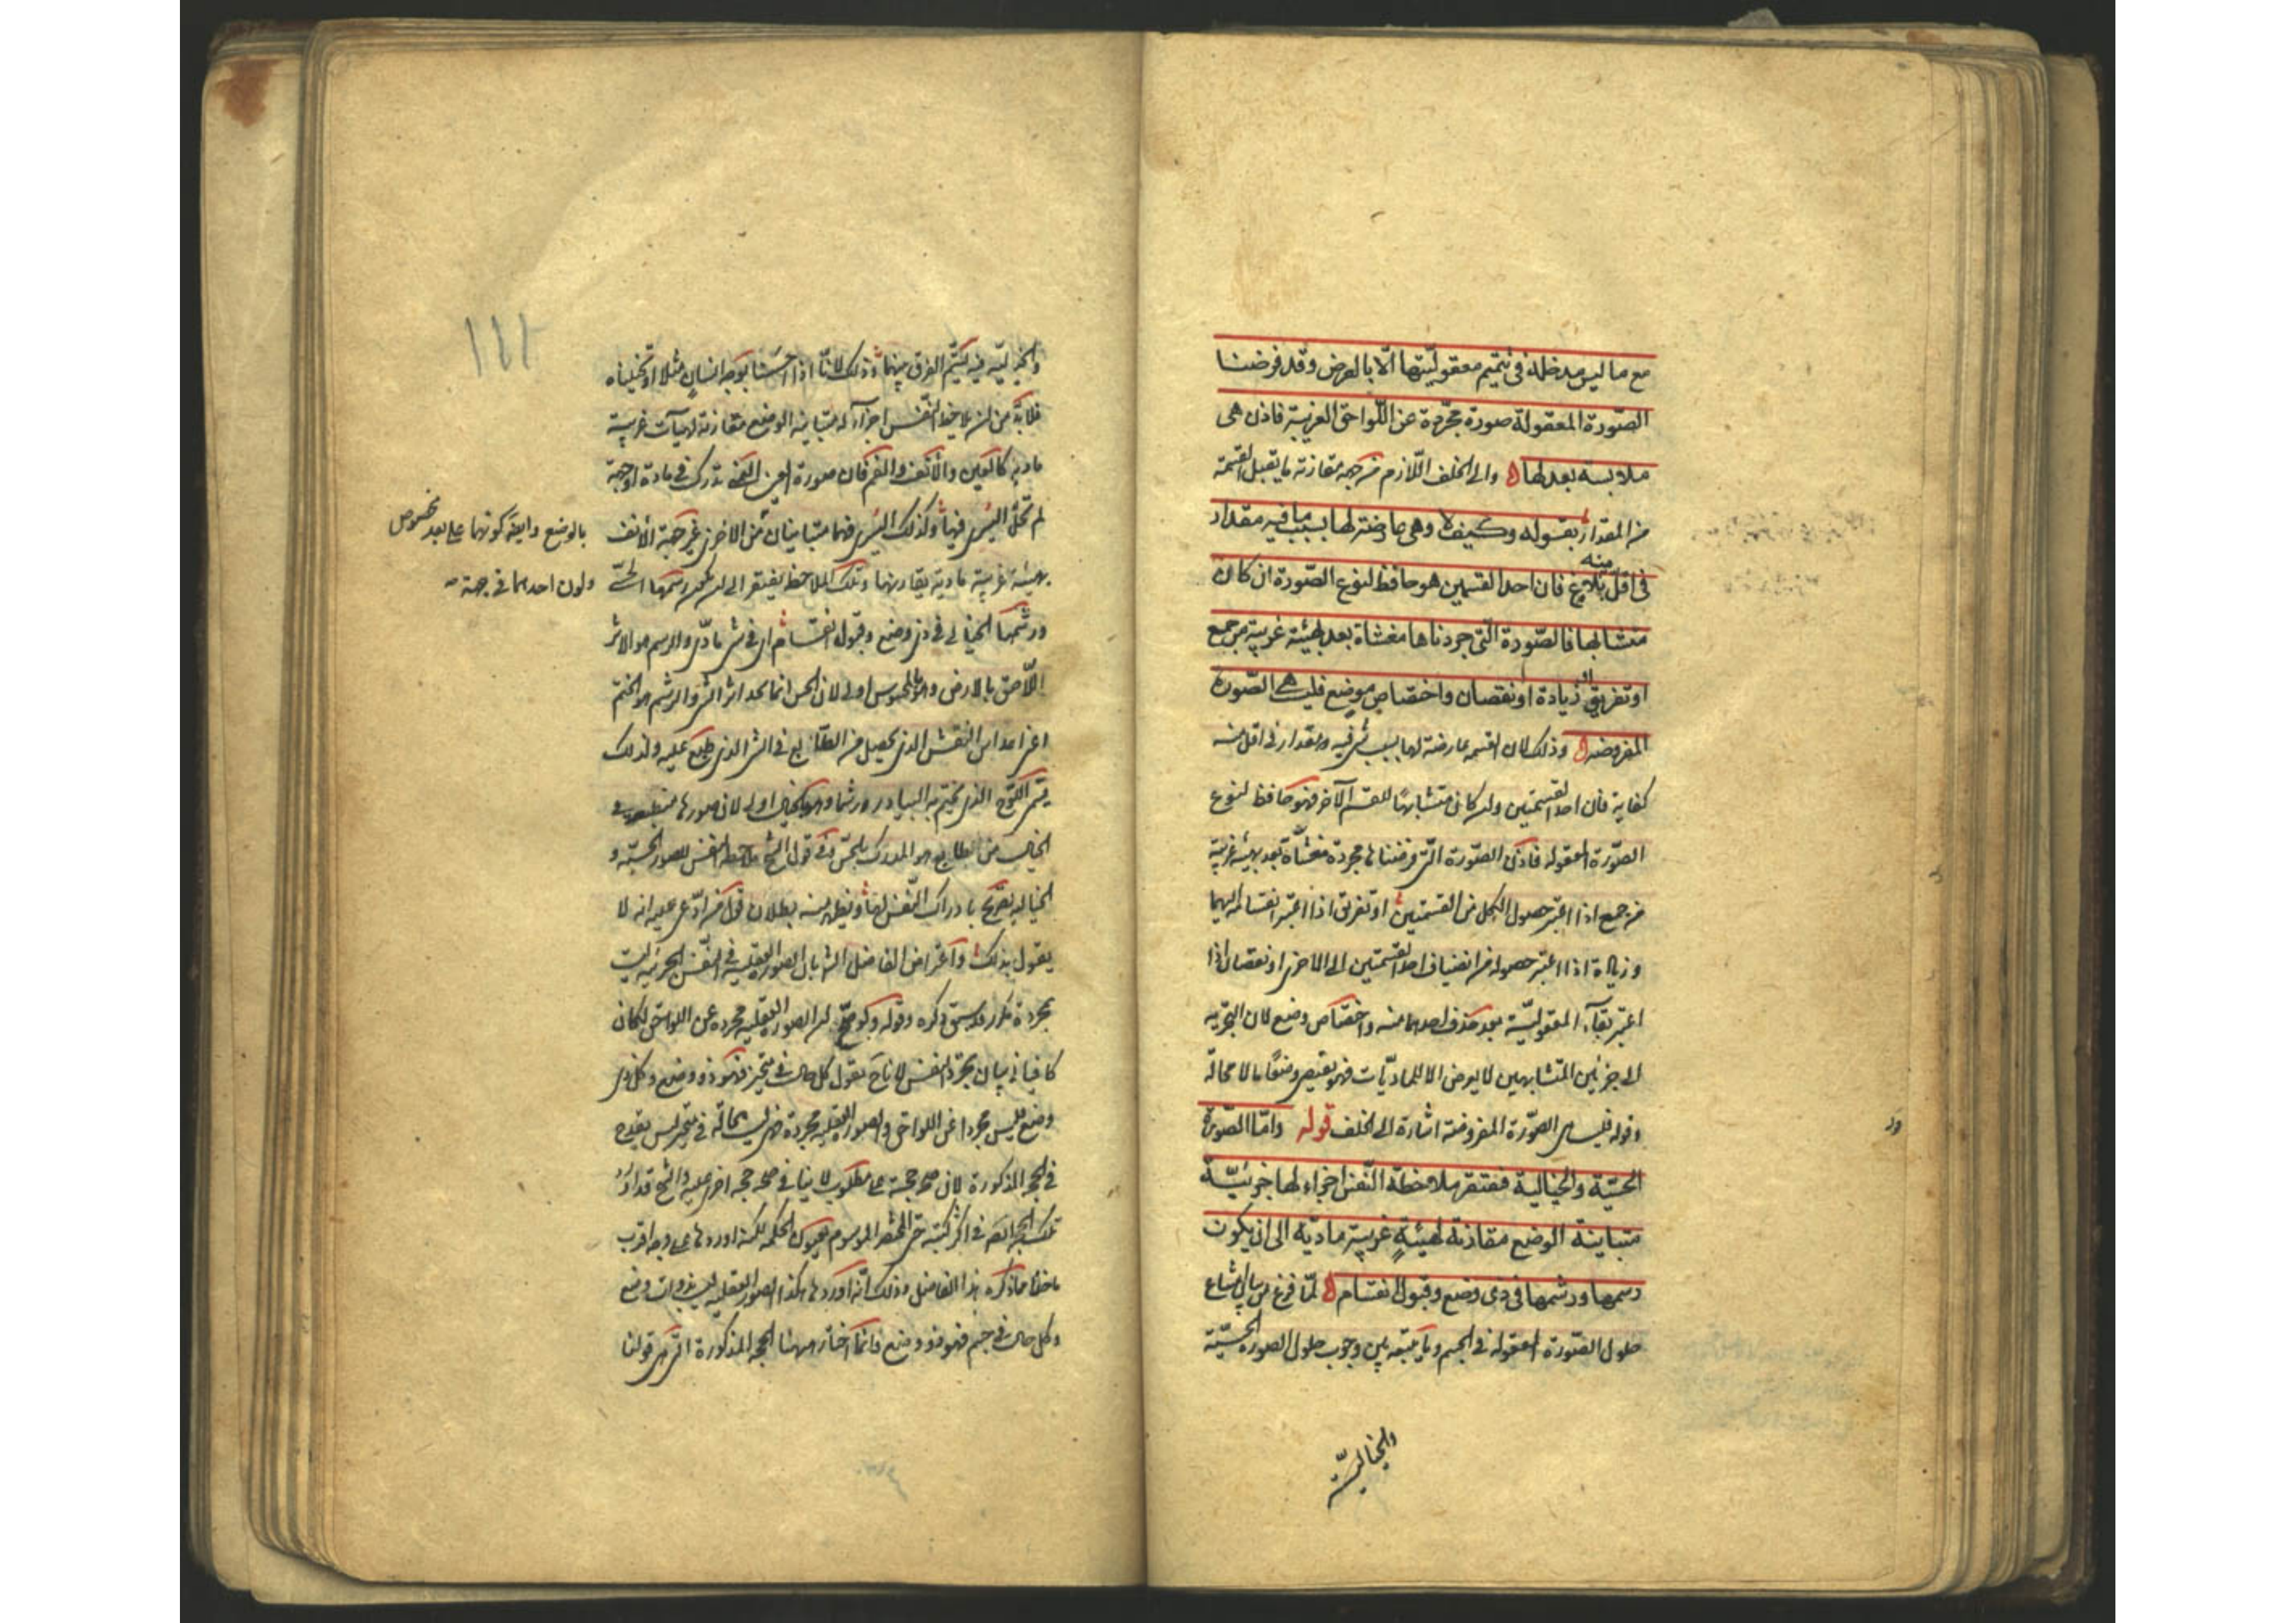 مع ما ليس مدخله في تتميم معقوليتها الا بالعرض وقد فرضنا
الصورة المعقولة صورة مجردة عن اللواحق الغريبة فاذن هى
ملابسة بعد لها ه والى الخلف اللازم من جهة مقارنة ما يقبل القسمة
من المقدار بقوله وكيف لا وهى عارضة لها بسبب ما فيه مقدار
في اقل منه بلاغ فان احد القسمين هو حافظ لنوع الصورة ان كان
متشابها فالصورة التى جردناها مغشاة بعد بهيئة غريبة من جمع
او تفريق او زيادة او نقصان واختصاص بوضع فليست هى الصورة
المفروضه ه وذلك لان القسمه عارضة لها بسبب شى فيه ومقدار فى اقل منه
كفاية فان احد القسمتين وان كان متشابها للقسم الآخر فهو حافظ لنوع
الصورة المعقوله فاذن الصورة التى فرضناها مجردة مغشاة بعد بهيئة غريبة
من جمع اذا اعتبر حصول الكل من القسمتين او تفريق اذا اعتبر انقسامه اليهما
و زيادة اذا اعتبر حصوله من انضياف احد القسمتين الى الاخرى او نقصان اذا
اعتبر بقاء المعقولية بعد حذف احدهما منه واختصاص وضع لان التجزيه
الى جزئين المتشابهين لا يعرض الا للماديات فهو يقتضى وضعا ما لا محالة
وقوله فليس هى الصورة المفروضة اشارة الى الخلف قوله واما الصورة
الحسية والخيالية فتفتقر ملاحظة النفس اجزاء لها جزئية
متباينة الوضع مقارنة لهيئة غريبة مادية الى ان يكون
رسمها ورشمها فى ذى وضع وقبول انقسام ه لما فرغ من بيان امتناع
حلول الصورة المعقوله فى الجسم وما يتبعه بين وجوب حلول الصورة الحسية
والخيالية
والخياليه فيه ليتم الفرق بينهما وذلك لانا اذا احسسنا بوجه انسان مثلا او تخيلناه
فلا بد من ان يلاحظ النفس اجزاء له متباينه الوضع مقارنة لهيآت غريبة
مادية كالعين والانف والفم فان صورة العين اليمنى تدرك فى مادة او جهة
لم تحل اليسرى فيها وكذلك اليسرى فهما متباينان من الاخرى غير جهة الانف
بالوضع وايضا كونهما على بعد مخصوص
وكون احدهما فى جهة
بهيئة غريبة مادية يقارنها وتلك الملاحظة يفتقر الى ان يكون رسمها الحسى
ورشمها الخيالى فى ذى وضع وقبول انقسام اى فى شى مادى والرسم هو الاثر
اللاصق بالارض وهو بالمحسوس اولى لان الحس انما يجد اثر الشى والرشم هو الختم
اعنى احداث النقش الذى يحصل من الطابع فى الشى الذى طبع عليه ولذلك
يسمى اللوح الذى يختم به البيادر ورشما وهو بالخيال اولى لان صورها منطبعة فى
الخيال من طابع هو المدرك بالحس وفى قول الشيخ ملاحظة النفس للصور الحسية و
الخيالية تصريح بادراك النفس لها ويظهر منه بطلان قول من ادعى عليه انه لا
يقول بذلك واعتراض الفاضل الشارح بان الصور العقليه فى النفس الجزئيه ليست
بمجردة مكرر قد سبق ذكره وقوله ولو صح ان الصور العقليه مجرده عن اللواحق لكان
كافيا فى بيان تجرد النفس لانا ح نقول كل حال فى متحيز فهو ذو وضع وكل ذى
وضع ليس مجردا عن اللواحق والصور العقليه مجردة فهى ليست بحالة فى متحيز ليس بقدح
فى الحجه المذكورة لان صحة حجة على مطلوب لا ينافى صحة حجه اخرى عليه والشيخ قد اورد
تلك الحجه ايضا فى اكثر كتبه حتى المختصر الموسوم بعيون الحكمه لكنه اوردها على وجه اقرب
ماخذا مما ذكره هذا الفاضل وذلك انه اوردها هكذا الصور العقليه ليست بذوات وضع
وكل حال فى جسم فهو ذو وضع فانما اختار ههنا الحجه المذكورة التى هى قولنا